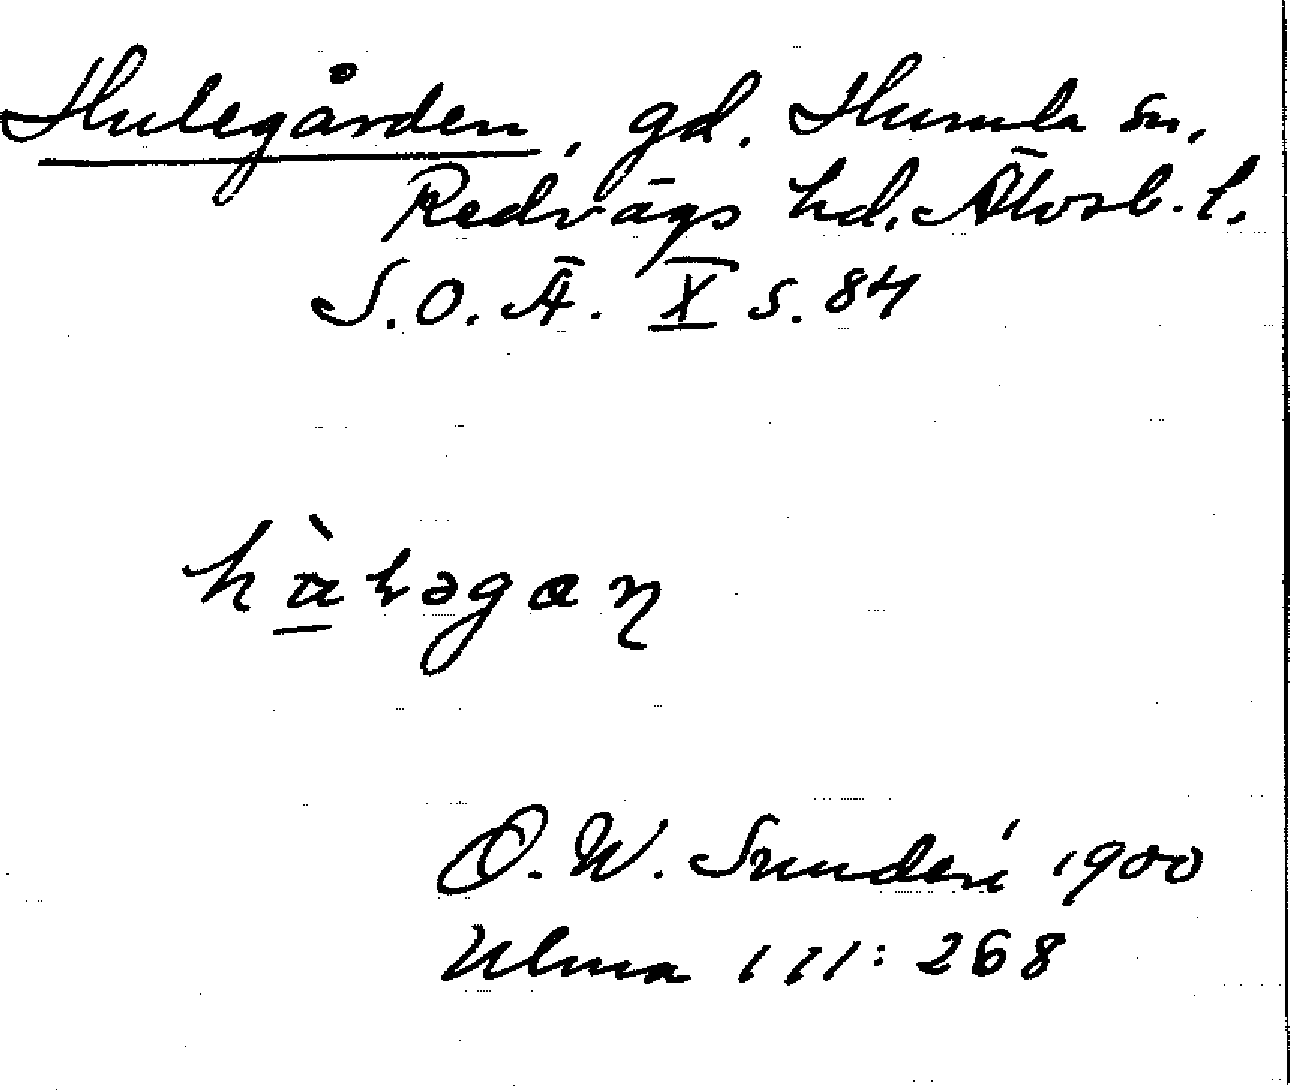 Hulegården, gd. Humla sn,
Redvägs hd. Älvsb. l.
S.O.Ä. X s. 84
hàləgaɳ
O.W. Sundén 1900
Ulma 111: 268